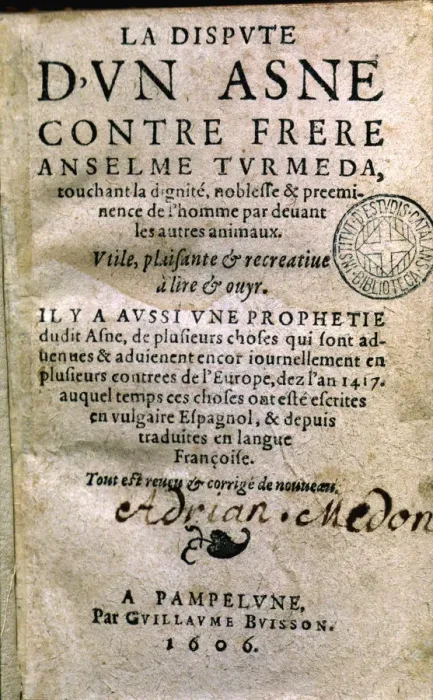 LA DISPVTE
D'VN ASNE
CONTRE FRERE
ANSELME TVRMEDA,
touchant la dignité, noblesse & preemi-
nence de l'homme par deuant
les autres animaux.
Vtile, plaisante & recreatiue
à lire & ouyr.
IL Y A AVSSI VNE PROPHETIE
dudit Asne, de plusieurs choses qui sont ad-
uenues & aduienent encor iournellement en
plusieurs contrees de l'Europe, dez l'an 1417.
auquel temps ces choses ont esté escrites
en vulgaire Espagnol, & depuis
traduites en langue
Françoise.
Tout est reueu & corrigé de nouueau.
Adrian. Medon
A PAMPELVNE,
Par GVILLAVME BVISSON.
1606.
INSTITVT D'ESTVDIS CATALANS
BIBLIOTECA